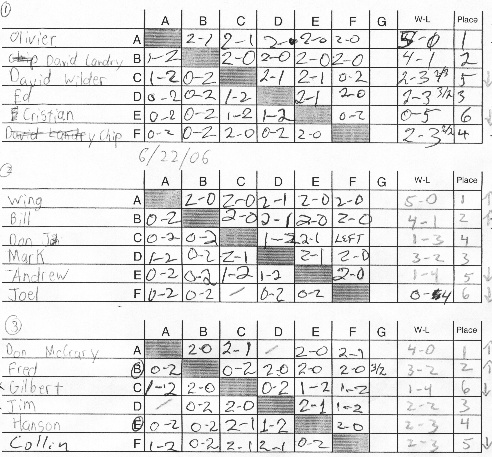 ① A B C D E F G W-L Place
Olivier A 2-1 2-1 2-0 2-0 2-0 5-0 1
David Landry B 1-2 2-0 2-0 2-0 2-0 4-1 2
David Wilder C 1-2 0-2 2-1 2-1 0-2 2-3 5 ↓
Ed D 0-2 0-2 1-2 2-1 2-0 2-3 3/2 3
Cristian E 0-2 0-2 1-2 1-2 0-2 0-5 6 ↓
Chip F 0-2 0-2 2-0 0-2 2-0 2-3 4
6/22/06
A B C D E F G W-L Place
Wing A 2-0 2-0 2-1 2-0 2-0 5-0 1 ↑
Bill B 0-2 2-0 2-1 2-0 2-0 4-1 2 ↑
Don C 0-2 0-2 1-2 2-1 LEFT 1-3 4
Mark D 1-2 0-2 2-1 2-1 2-0 3-2 3
Andrew E 0-2 0-2 1-2 1-2 2-0 1-4 5 ↓
Joel F 0-2 0-2 / 0-2 0-2 0-4 6 ↓
③ A B C D E F G W-L Place
Don McCrary A 2-0 2-1 / 2-0 2-1 4-0 1 ↑
Fred B 0-2 0-2 2-0 2-0 2-0 3/2 3-2 2 ↑
Gilbert C 1-2 2-0 0-2 1-2 1-2 1-4 6 ↓
Tim D / 0-2 2-0 2-1 1-2 2-2 3
Hanson E 0-2 0-2 2-1 1-2 2-0 2-3 4
Collin F 1-2 0-2 2-1 2-1 0-2 2-3 5 ↓